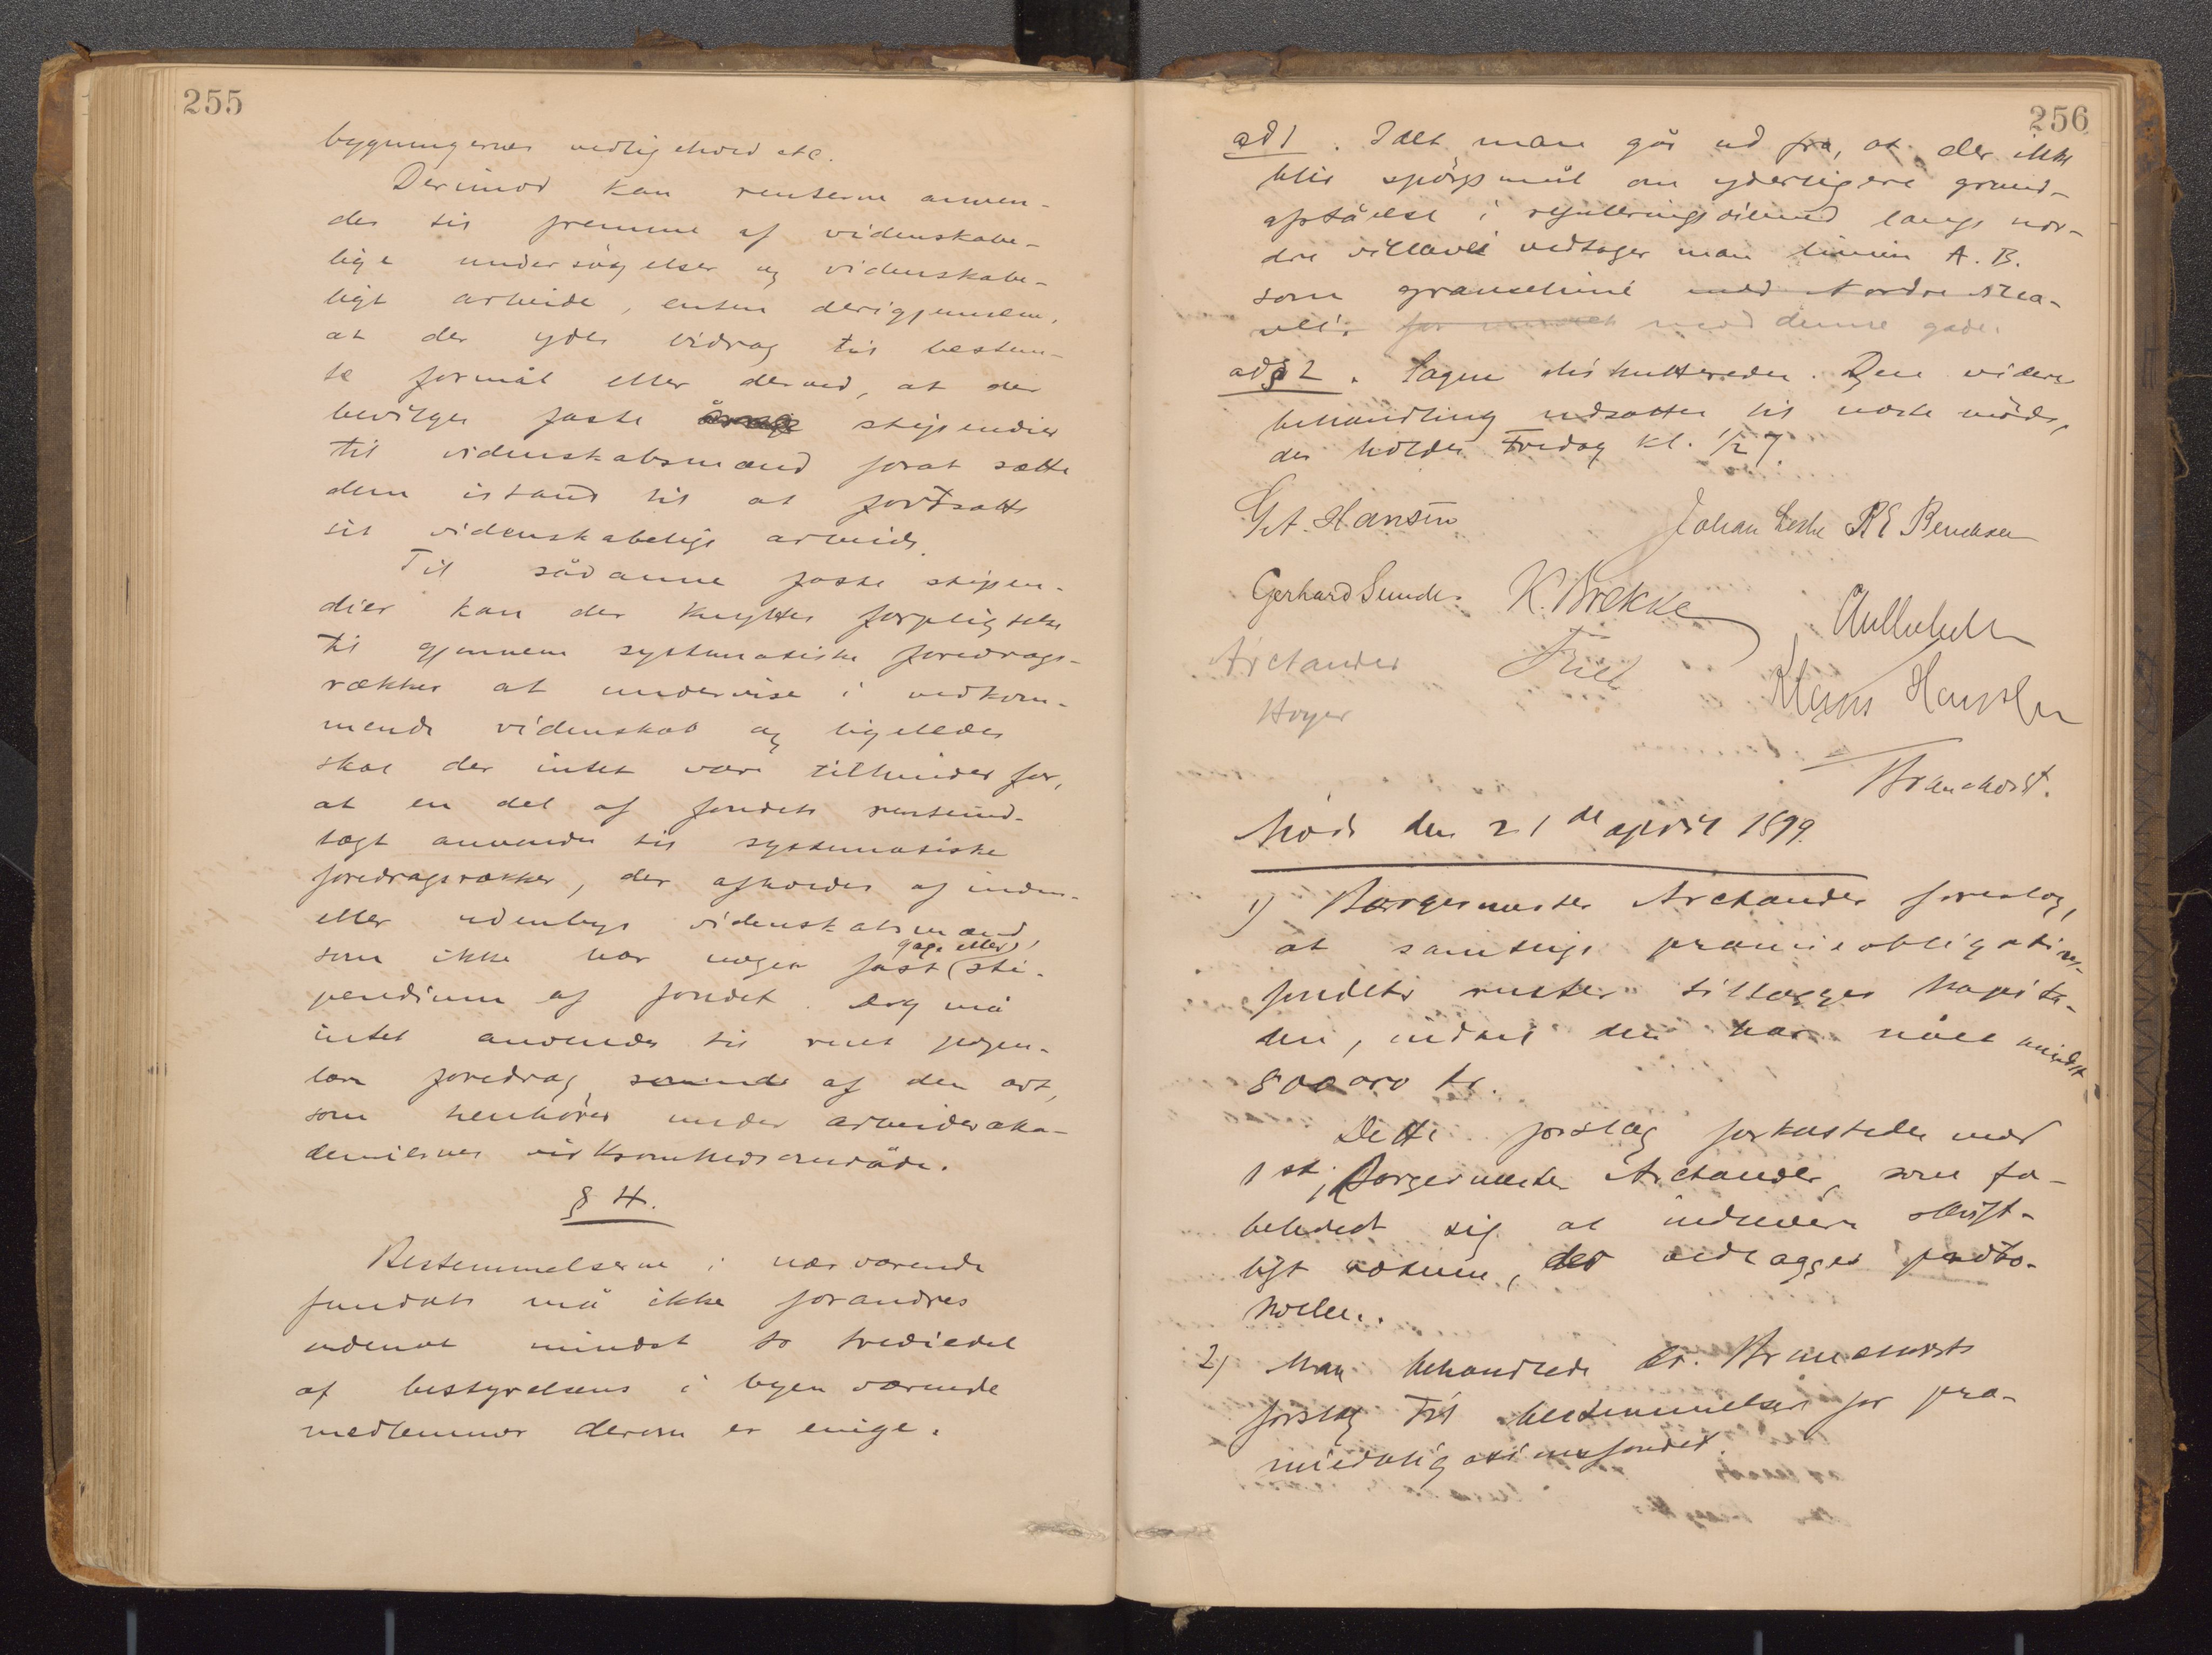 255
bygningernes vedligehold etc.
Derimod kan renterne anven-
des til fremme af videnskabe-
lige undersøgelser og videnskabe-
ligt arbeide, enten derigjennem,
at der ydes bidrag til bestem-
te formål eller derved, at der
bevilges faste stipendier
til videnskabsmænd forat sætte
dem istand til at fortsætte
sit videnskabelige arbeide.
Til sådanne faste stipen-
dier kan der knyttes forpligtelse
til gjennem systematiske foredrags-
rækker at undervise i vedkom-
mende videnskab og ligeledes
skal der intet være tilhinder for,
at en del af fondets renteind-
tægt anvendes til systematiske
foredragsrækker, der afholdes af inden-
eller udenbys videnskabsmænd,
gage eller
som ikke har nogen fast sti-
pendium af fondet. Dog må
intet anvendes til rent popu-
lære foredrag af den art,
som henhører under arbeideraka-
demiernes virksomhedsområde.
§ 4.
Bestemmelserne i nærværende
fundats må ikke forandres
udenat mindst to trediedel
af bestyrelsens i byen værende
medlemmer derom er enige.
256
ad 1. Idet man går ud fra, at der ikke
blir spørgsmål om yderligere grund-
afståelse i reguleringsøiemed langs nor-
dre villavei vedtager man linien A. B.
som grænselinie med Nordre villa-
vei. mod denne gade.
ad 2. Sagen diskutteredes. Den videre
behandling udsattes til næste møde,
der holdes Fredag kl. 1/2 7.
Hansen Johan R E Bendixen
Gerhard Sunde. K. Brekke
Arctander Friele
Høyer Klaus Hanssen
Brunchorst.
Møde den 21de april 1899.
1) Borgermester Arctander foreslog,
at samtlige præmieobligations-
fondets renter tillægges kapita-
len, indtil den har nået mindst
800 000 kr.
Dette forslag forkastedes mod
1 st., Borgermester Arctander, som for-
beholdt sig at indlevere skrift-
ligt votum, der vedlægges proto-
kollen.
2) Man behandlede dr. Brunchorsts
forslag til bestemmelser for præ-
mieobligationsfondet.